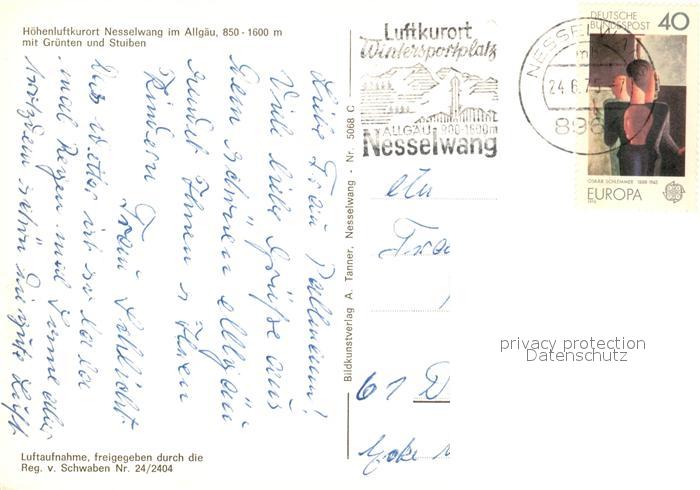 Höhenluftkurort Nesselwang im Allgäu, 850 - 1600 m
mit Grünten und Stuiben
Liebe Frau
Viele liebe Grüße aus
dem schönen Allgäu
sendet Ihnen u. Ihren
Kindern
Frau
Das Wetter ist so lala
mal Regen mal Sonne aber
trotzdem schön die gute Luft.
Luftaufnahme, freigegeben durch die
Reg. v. Schwaben Nr. 24/2404
Bildkunstverlag A. Tanner, Nesselwang - Nr. 5068 C
Luftkurort
Wintersportplatz
ALLGÄU 900-1600m
Nesselwang
NESSELW
24.6.75
896
DEUTSCHE
BUNDESPOST
40
OSKAR SCHLEMMER 1888-1943
EUROPA
1975
Frau
61 D
Ecke
privacy protection
Datenschutz